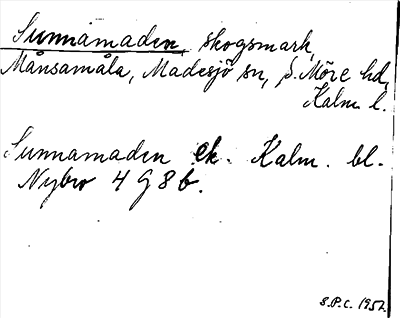 Sunnamaden, skogsmark,
Månsamåla, Madesjö sn, S. Möre hd,
Kalm. l.
Sunnamaden ek. Kalm. bl.
Nybro 4 G 8 b.
S.P.C. 1952